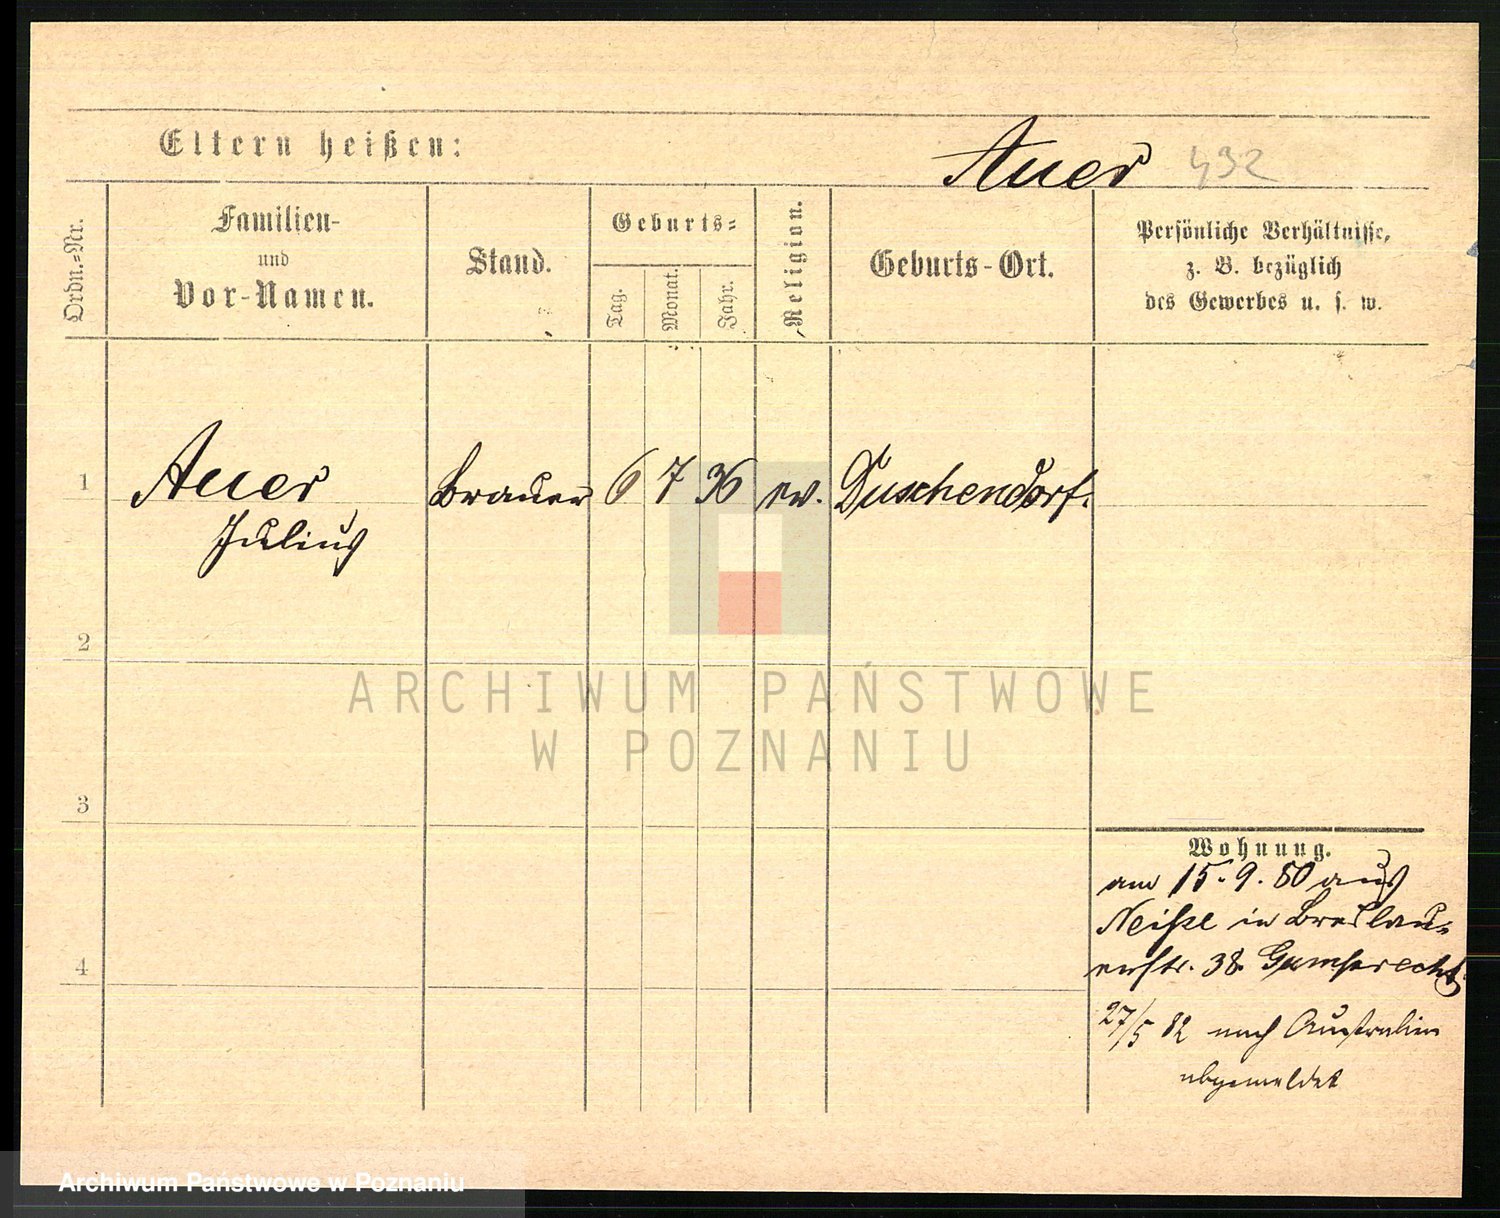 Eltern heißen:
Auer 432
Ordn.=Nr.
Familien-
und
Vor-Namen.
Stand.
Geburts=
Tag.
Monat.
Jahr.
Religion.
Geburts-Ort.
Persönliche Verhältnisse,
z. B. bezüglich
des Gewerbes u. s. w.
1 Auer Brauer 6 7 36 ev. Duschendorf.
Julius
2
ARCHIWUM PAŃSTWOWE
W POZNANIU
3
Wohnung.
am 15. 9. 80 aus
Neiße in Breslau=
erstr. 38. Gumprecht
4
27/5 82 nach Australien
abgemeldet
Archiwum Państwowe w Poznaniu